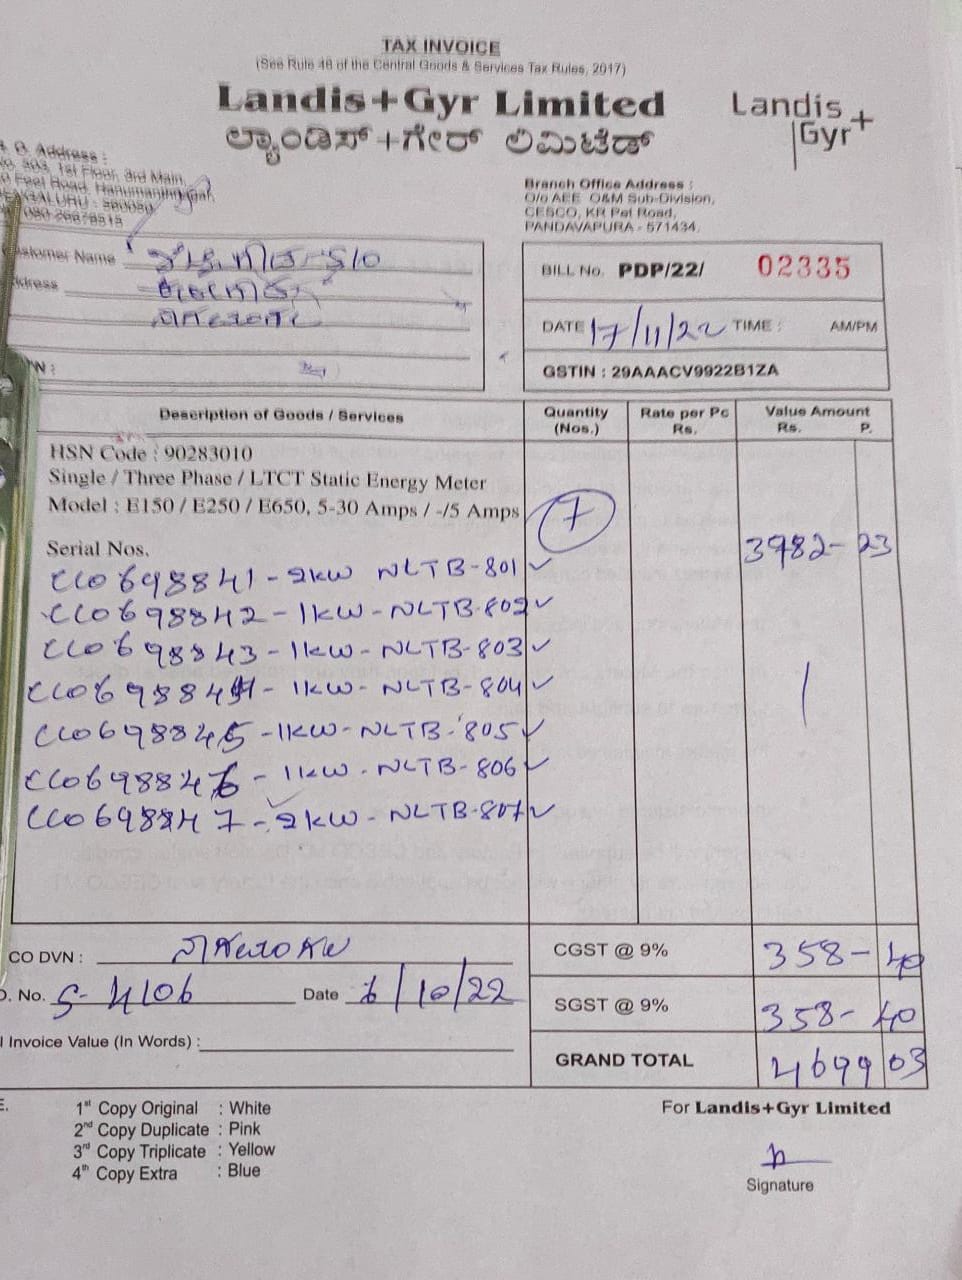 TAX INVOICE
(See Rule 46 of the Central Goods & Services Tax Rules, 2017)
Landis+Gyr Limited
ಲ್ಯಾಂಡಿಸ್+ಗೇರ್ ಲಿಮಿಟೆಡ್
Landis
Gyr+
Address :
303, 1st Floor, 3rd Main,
Road, Hanumanthnagar,
BENGALURU - 560050
Branch Office Address :
O/o AEE O&M Sub-Division,
CESCO, KR Pet Road,
PANDAVAPURA - 571434.
Customer Name
Address
BILL No. PDP/22/ 02335
DATE 17/11/22 TIME : AM/PM
GSTIN : 29AAACV9922B1ZA
Description of Goods / Services Quantity (Nos.) Rate per Pc Rs. Value Amount Rs. P.
HSN Code : 90283010
Single / Three Phase / LTCT Static Energy Meter
Model : E150 / E250 / E650, 5-30 Amps / -/5 Amps 7
Serial Nos. 3982-23
CC0698841-2KW NLTB-801
CC0698842-1KW-NLTB-802
CC0698843-1KW-NLTB-803
CC0698844-1KW-NLTB-804
CC0698845-1KW-NLTB-805
CC0698846-1KW-NLTB-806
CC0698847-2KW-NLTB-807
CO DVN :
CGST @ 9% 358-40
O. No. S-4106 Date 6/10/22
SGST @ 9% 358-40
Invoice Value (In Words) :
GRAND TOTAL 4699 03
1st Copy Original : White
2nd Copy Duplicate : Pink
3rd Copy Triplicate : Yellow
4th Copy Extra : Blue
For Landis+Gyr Limited
Signature